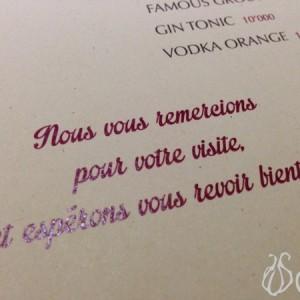 FAMOUS
GIN TONIC 10'000
VODKA ORANGE
Nous vous remercions
pour votre visite,
et espérons vous revoir